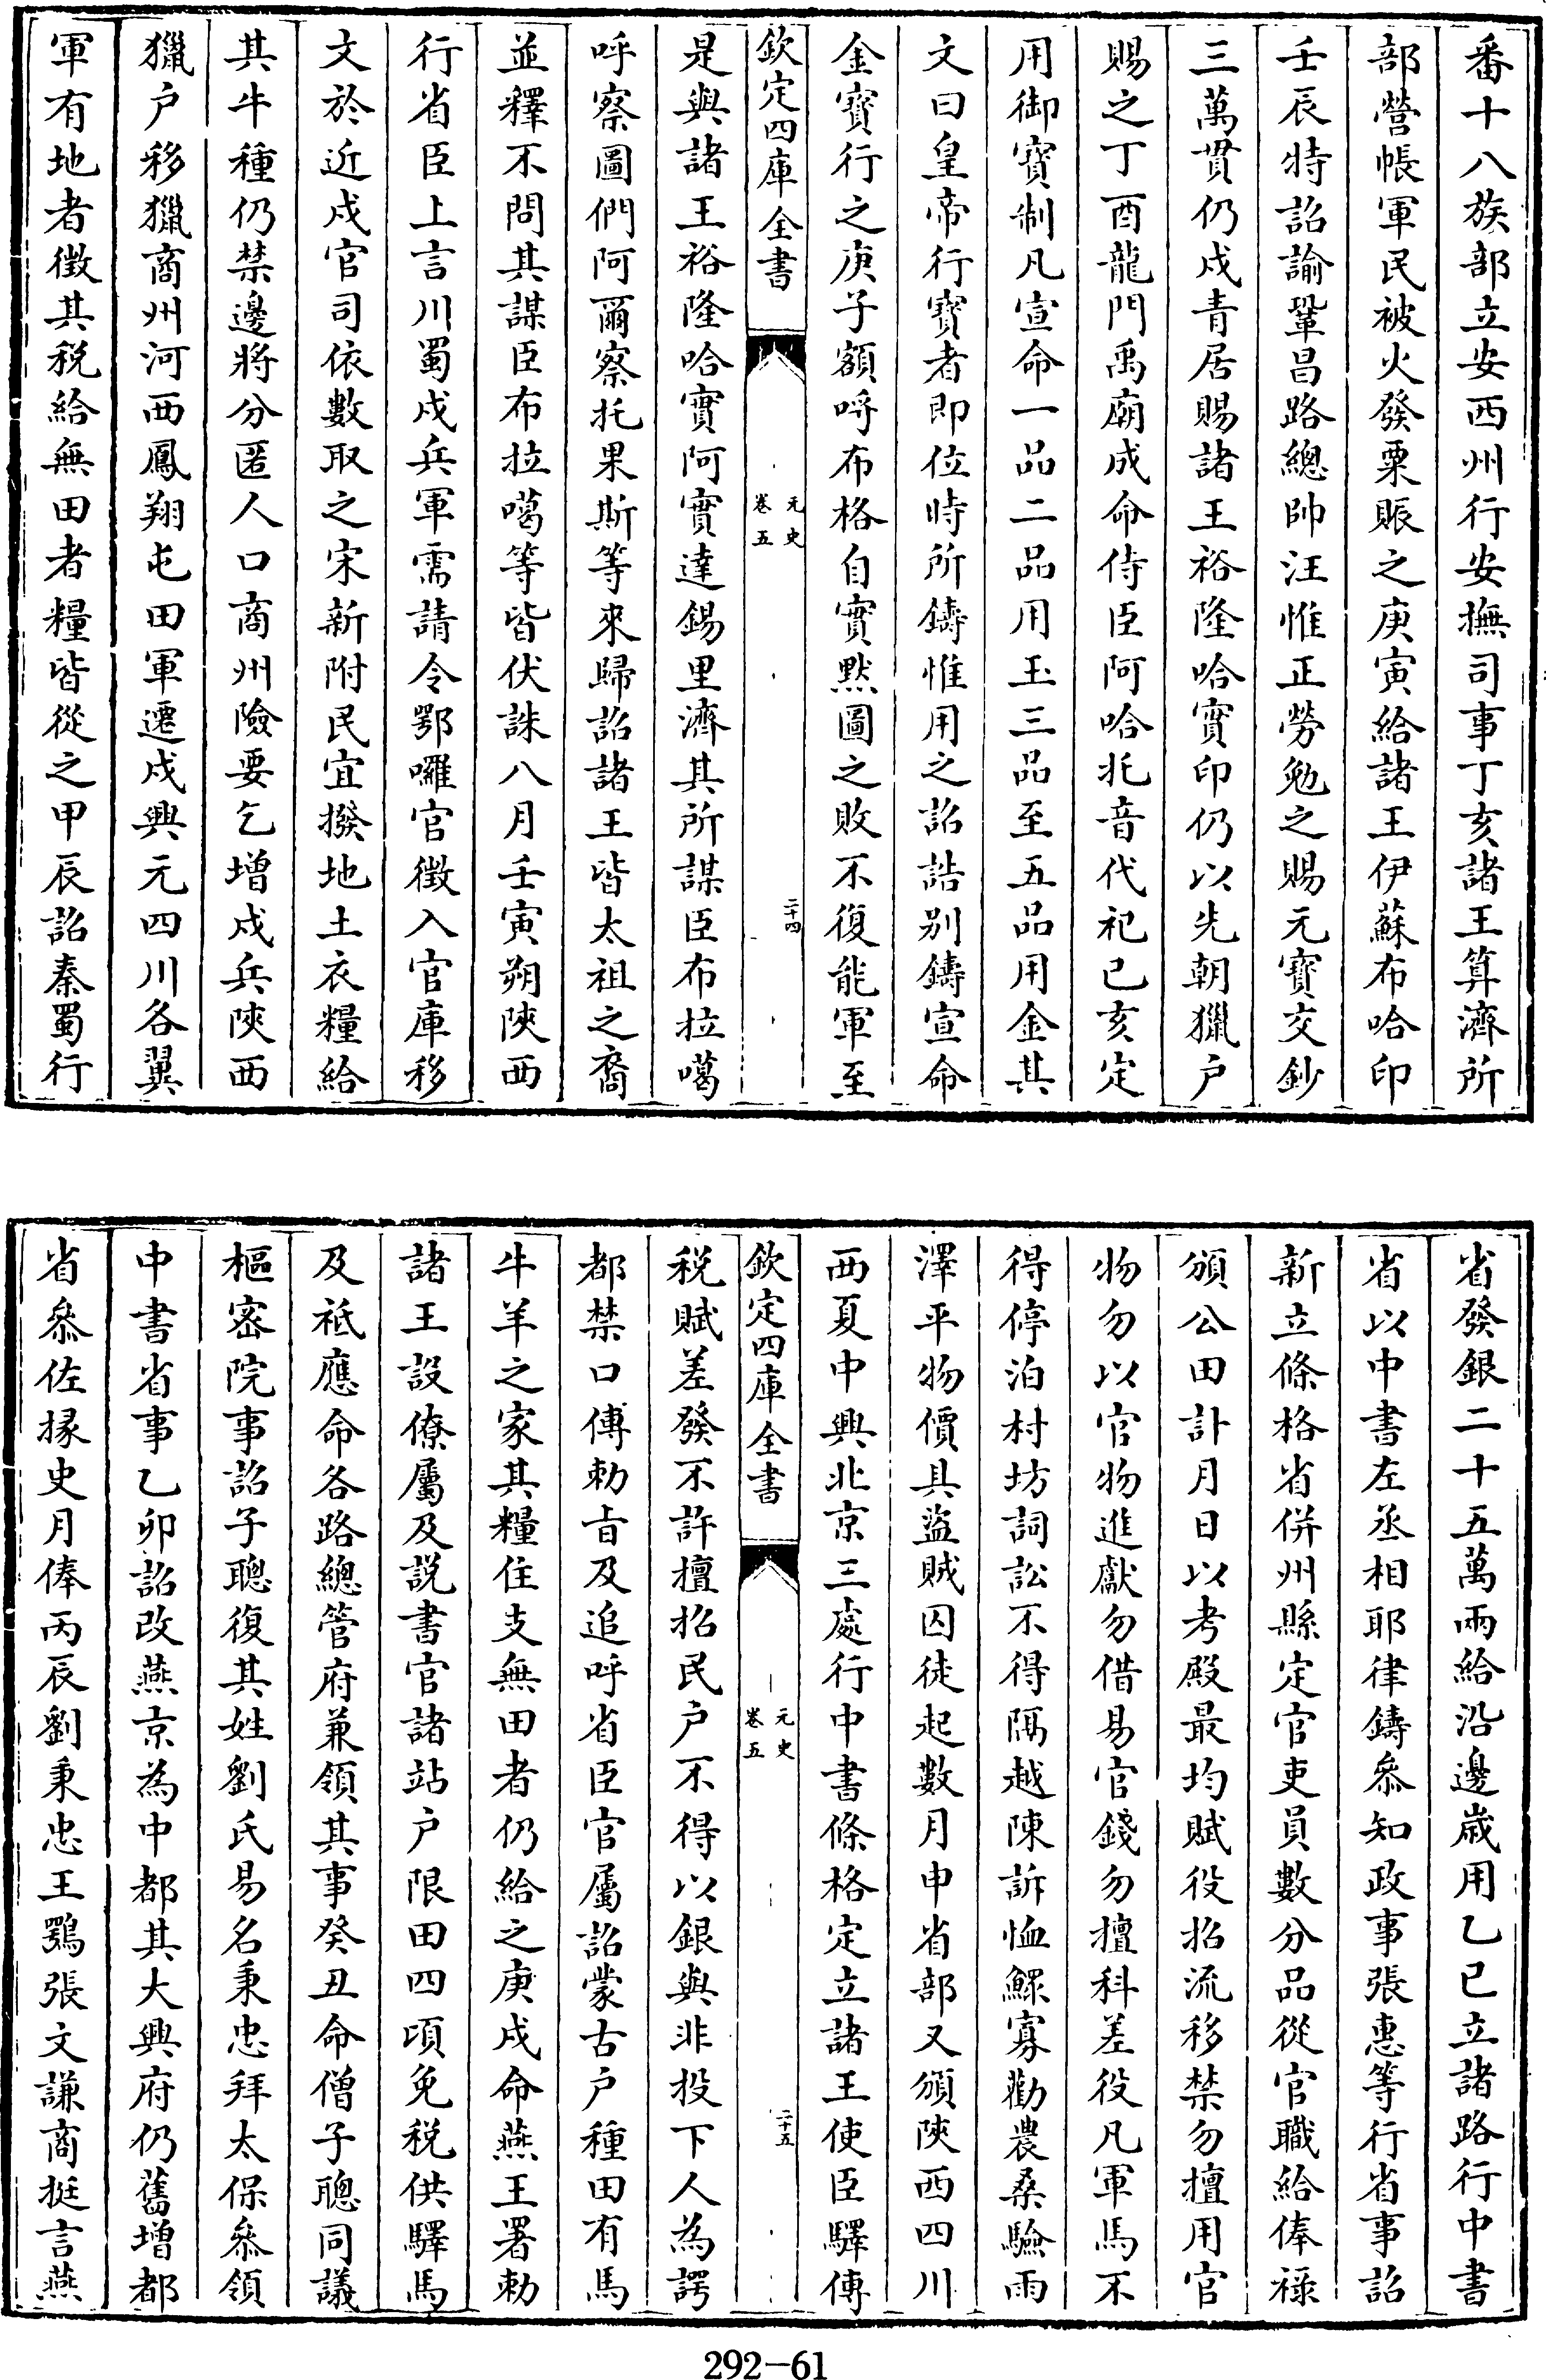 番十八族部立安西州行安撫司事丁亥諸王算濟所
部營帳軍民被火發粟賑之庚寅給諸王伊蘇布哈印
壬辰特詔諭鞏昌路總帥汪惟正勞勉之賜元寶交鈔
三萬貫仍戍青居賜諸王裕隆哈實印仍以先朝獵户
賜之丁酉龍門禹廟成命侍臣阿哈托音代祀已亥定
用御寶制凡宣命一品二品用玉三品至五品用金其
文曰皇帝行寶者即位時所鑄惟用之詔誥别鑄宣命
金寶行之庚子額呼布格自實黙圖之敗不復能軍至
欽定四庫全書
元史
卷五
二十四
是與諸王裕隆哈實阿實達錫里濟其所謀臣布拉噶
呼察圖們阿爾察托果斯等來歸詔諸王皆太祖之裔
並釋不問其謀臣布拉噶等皆伏誅八月壬寅朔陜西
行省臣上言川蜀戍兵軍需請令鄂囉官徴入官庫移
文於近戍官司依數取之宋新附民宜撥地土衣糧給
其牛種仍禁邊將分匿人口商州險要乞增戍兵陜西
獵户移獵商州河西鳳翔屯田軍遷戍興元四川各翼
軍有地者徴其税給無田者糧皆從之甲辰詔秦蜀行
省發銀二十五萬兩給沿邊歲用乙已立諸路行中書
省以中書左丞相耶律鑄叅知政事張惠等行省事詔
新立條格省併州縣定官吏員數分品從官職給俸禄
頒公田計月日以考殿最均賦役招流移禁勿擅用官
物勿以官物進獻勿借易官錢勿擅科差役凡軍馬不
得停泊村坊詞訟不得隔越陳訴恤鰥寡勸農桑驗雨
澤平物價具盜賊囚徒起數月申省部又頒陜西四川
西夏中興北京三處行中書條格定立諸王使臣驛傳
欽定四庫全書
元史
卷五
二十五
税賦差發不許擅招民户不得以銀與非投下人為諤
都禁口傳勅旨及追呼省臣官屬詔蒙古户種田有馬
牛羊之家其糧住支無田者仍給之庚戌命燕王署勅
諸王設僚屬及説書官諸站户限田四頃免税供驛馬
及祗應命各路總管府兼領其事癸丑命僧子聰同議
樞宻院事詔子聰復其姓劉氏易名秉忠拜太保叅領
中書省事乙卯詔改燕京為中都其大興府仍舊增都
省叅佐掾史月俸丙辰劉秉忠王鶚張文謙商挺言燕
292-61